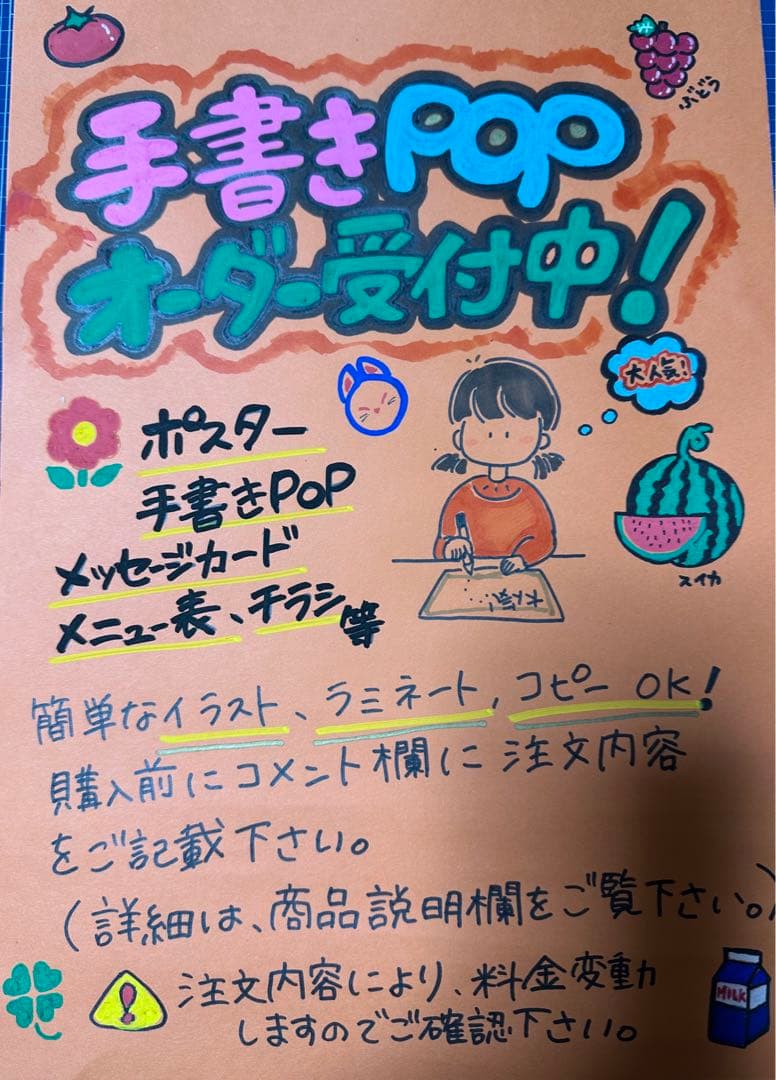 ぶどう
手書きPOP
オーダー受付中!
大人気!
ポスター
手書きPOP
メッセージカード
メニュー表、チラシ等
スイカ
簡単なイラスト、ラミネート、コピー OK!
購入前にコメント欄に注文内容
をご記載下さい。
(詳細は、商品説明欄をご覧下さい。)
注文内容により、料金変動
しますのでご確認下さい。
MILK